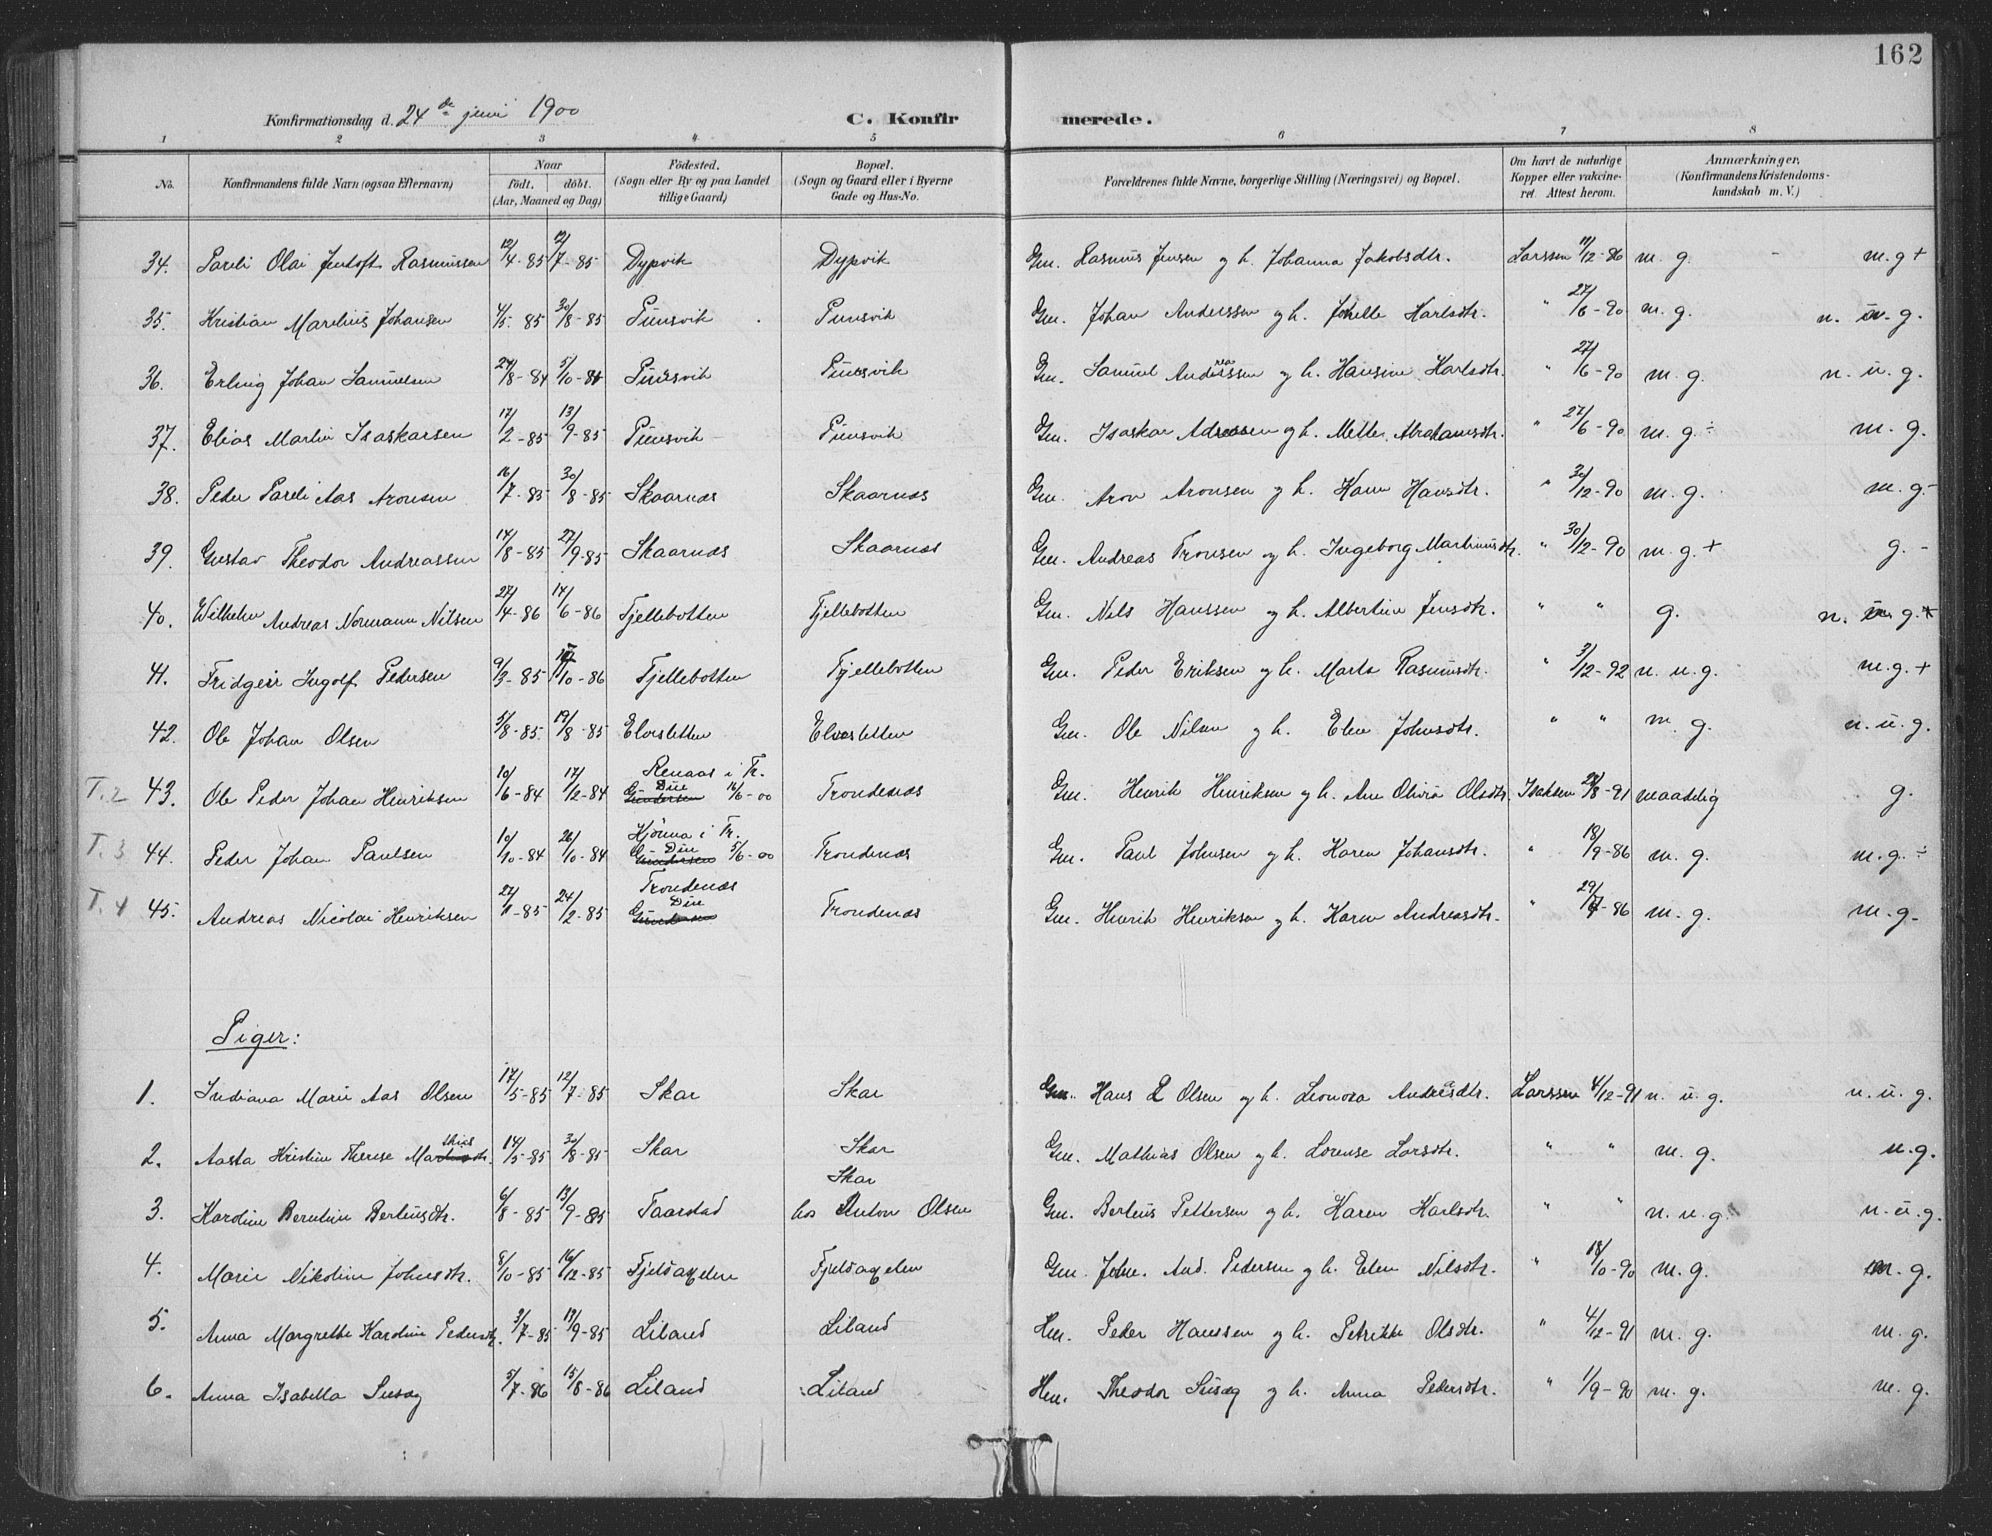 162
Konfirmationsdag d. 24de juni 1900
C. Konfirmerede.
1 2 3 4 5 6 7 8
No. Konfirmandens fulde Navn (ogsaa Efternavn) Naar födt. döbt. (Aar, Maaned og Dag) Födested. (Sogn eller By og paa Landet tillige Gaard) Bopæl. (Sogn og Gaard eller i Byerne Gade og Hus-No. Forældrenes fulde Navne, borgerlige Stilling (Næringsvei) og Bopæl. Om havt de naturlige Kopper eller vakcineret. Attest herom. Anmærkninger, (Konfirmandens Kristendomskundskab m. V.)
34. Pareli Olai Jentoft Rasmussen 12/4-85 12/7-85 Dypvik Dypvik Gm. Rasmus Jensen og h. Johanna Jakobsdtr. Larssen 11/12-86 m. g. - m. g +
35. Kristian Marelius Johansen 4/5-85 30/8-85 Punsvik Punsvik Gm. Johan Anderssen og h. Karlsdtr. " 27/6-90 m. g. n. u. g.
36. Erling Johan Samuelsen 27/8-84 5/10-84 Punsvik Punsvik Gm. Samuel og h. Hansine Karlsdtr. " 27/6-90 m. g. n. u. g.
37. Elias Martin Isaskarsen 17/2-85 13/9-85 Punsvik Punsvik Gm. Isaskar og h. Mette Abrahamsdtr. " 27/6-90 m. g ÷ m. g.
38. Peder Pareli Aas Aronsen 16/7-85 30/8-85 Skaarnæs Skaarnæs Gm. Aron Aronsen og h. Hansdtr. " 30/12-90 m. g. m. g -
39. Gustav Theodor Andreassen 14/8-85 27/9-85 Skaarnæs Skaarnæs Gm. Andreas Tronsen og h. Ingeborg Martinusdtr. " 30/12-90 m. g. + g. -
40. Wilhelm Andreas Normann Nilsen 27/4-86 14/6-86 Fjellebotten Fjellebotten Gm. Nils Hanssen og h. Albertine Jensdtr. " " g. n. g. +
41. Fridgeir Ingolf Pedersen 9/3-85 /10-86 Fjellebotten Fjellebotten Gm. Peder Eriksen og h. Marta Rasmusdtr. " 3/12-92 n. u. g. m. g. +
42. Ole Johan Olsen 5/8-85 19/8-85 Elvesletten Elvesletten Gm. Ole Nilsen og h. Elen Johnsdtr. " " m. g. n. u. g.
T. 2 43. Ole Peder Johan Henriksen 10/6-84 17/12-84 Renaas i Tr. 14/6-00 Trondenæs Gm. Henrik Henriksen og h. Ane Olivia Olsdtr. Isaksen /8-91 maadelig g.
T. 3 44. Peder Johan Paulsen 10/10-84 26/10-84 i Tr. 5/6-00 Trondenæs Gm. Paul Johnsen og h. Karen Johansdtr. " 18/9-86 m. g. m. g. ÷
T. 4 45. Andreas Nicolai Henriksen 27/1-85 24/2-85 Trondenæs Trondenæs Gm. Henrik Henriksen og h. Karen Andreasdtr. " 29/-86 m. g. m. g.
Piger:
1. Indiana Marie Aas Olsen 17/5-85 12/7-85 Skar Skar Gm. Hans L Olsen og h. Leonora Andersdtr. Larssen 4/12-91 n. u. g. n. u. g.
2. Aasta Kristine Therese Mathisdtr. 14/5-85 30/8-85 Skar Skar Gm. Mathias Olsen og h. Lorense Larsdtr. " " m. g. u. g.
3. Karoline Berntine Berteusdtr. 6/8-85 13/9-85 Taarstad Skar hos Anton Olsen Gm. Berteus Pettersen og h. Karen Karlsdtr. " " n. u. g. n. u. g.
4. Marie Nikoline Johnsdtr. 8/10-85 16/12-85 Fjeldaxelen Fjeldaxelen Gm. John. And. Pedersen og h. Elen Nilsdtr. " 18/10-90 m. g. m. g.
5. Anna Margrethe Karoline Pedersdtr. 3/7-85 13/9-85 Liland Liland Hm. Peder Hanssen og h. Petrikke Olsdtr. " 4/12-91 m. g. m. g.
6. Anna Isabella Susæg 5/7-86 15/8-86 Liland Liland Hm. Theodor Susæg og h. Anna Pedersdtr. " 1/9-90 m. g. m. g.